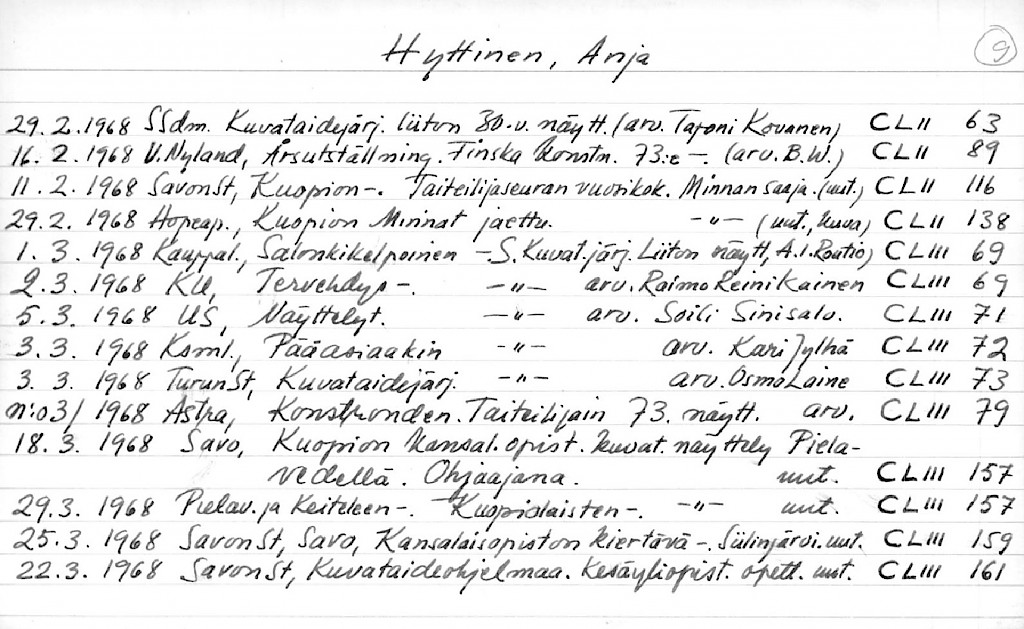 Hyttinen, Anja
9
29.2.1968 SSdm. Kuvataidejärj. liiton 30-v. näytt. (arv. Tapani Kovanen) CLII 63
16.2.1968 V.Nyland, Årsutställning. Finska Konstn. 73:e -. (arv. B.W.) CLII 89
11.2.1968 SavonSt, Kuopion -. Taiteilijaseuran vuosikok. Minnan saaja. (uut.) CLII 116
29.2.1968 Hopeap., Kuopion Minnat jaettu. -"- (uut., kuva) CLII 138
1.3.1968 Kauppal., Salonkikelpoinen -S.Kuvat.järj. Liiton näytt, A.I.Routio) CLIII 69
2.3.1968 KU, Tervehdys -. -"- arv. Raimo Reinikainen CLIII 69
5.3.1968 US, Näyttelyt. -"- arv. Soili Sinisalo. CLIII 71
3.3.1968 Ksml., Pääasiaakin -"- arv. Kari Jylhä CLIII 72
3.3.1968 TurunSt, Kuvataidejärj. -"- arv. Osmo Laine CLIII 73
n:o 3/1968 Astra, Konstronden. Taiteilijain 73. näytt. arv. CLIII 79
18.3.1968 Savo, Kuopion Kansal.opist. kuvat. näyttely Piela-
vedellä. Ohjaajana. uut. CLIII 157
29.3.1968 Pielav. ja Keiteleen -. Kuopiolaisten -. -"- uut. CLIII 157
25.3.1968 SavonSt, Savo, Kansalaisopiston kiertävä -. Siilinjärvi. uut. CLIII 159
22.3.1968 SavonSt, Kuvataideohjelmaa. Kesäyliopist. opett. uut. CLIII 161